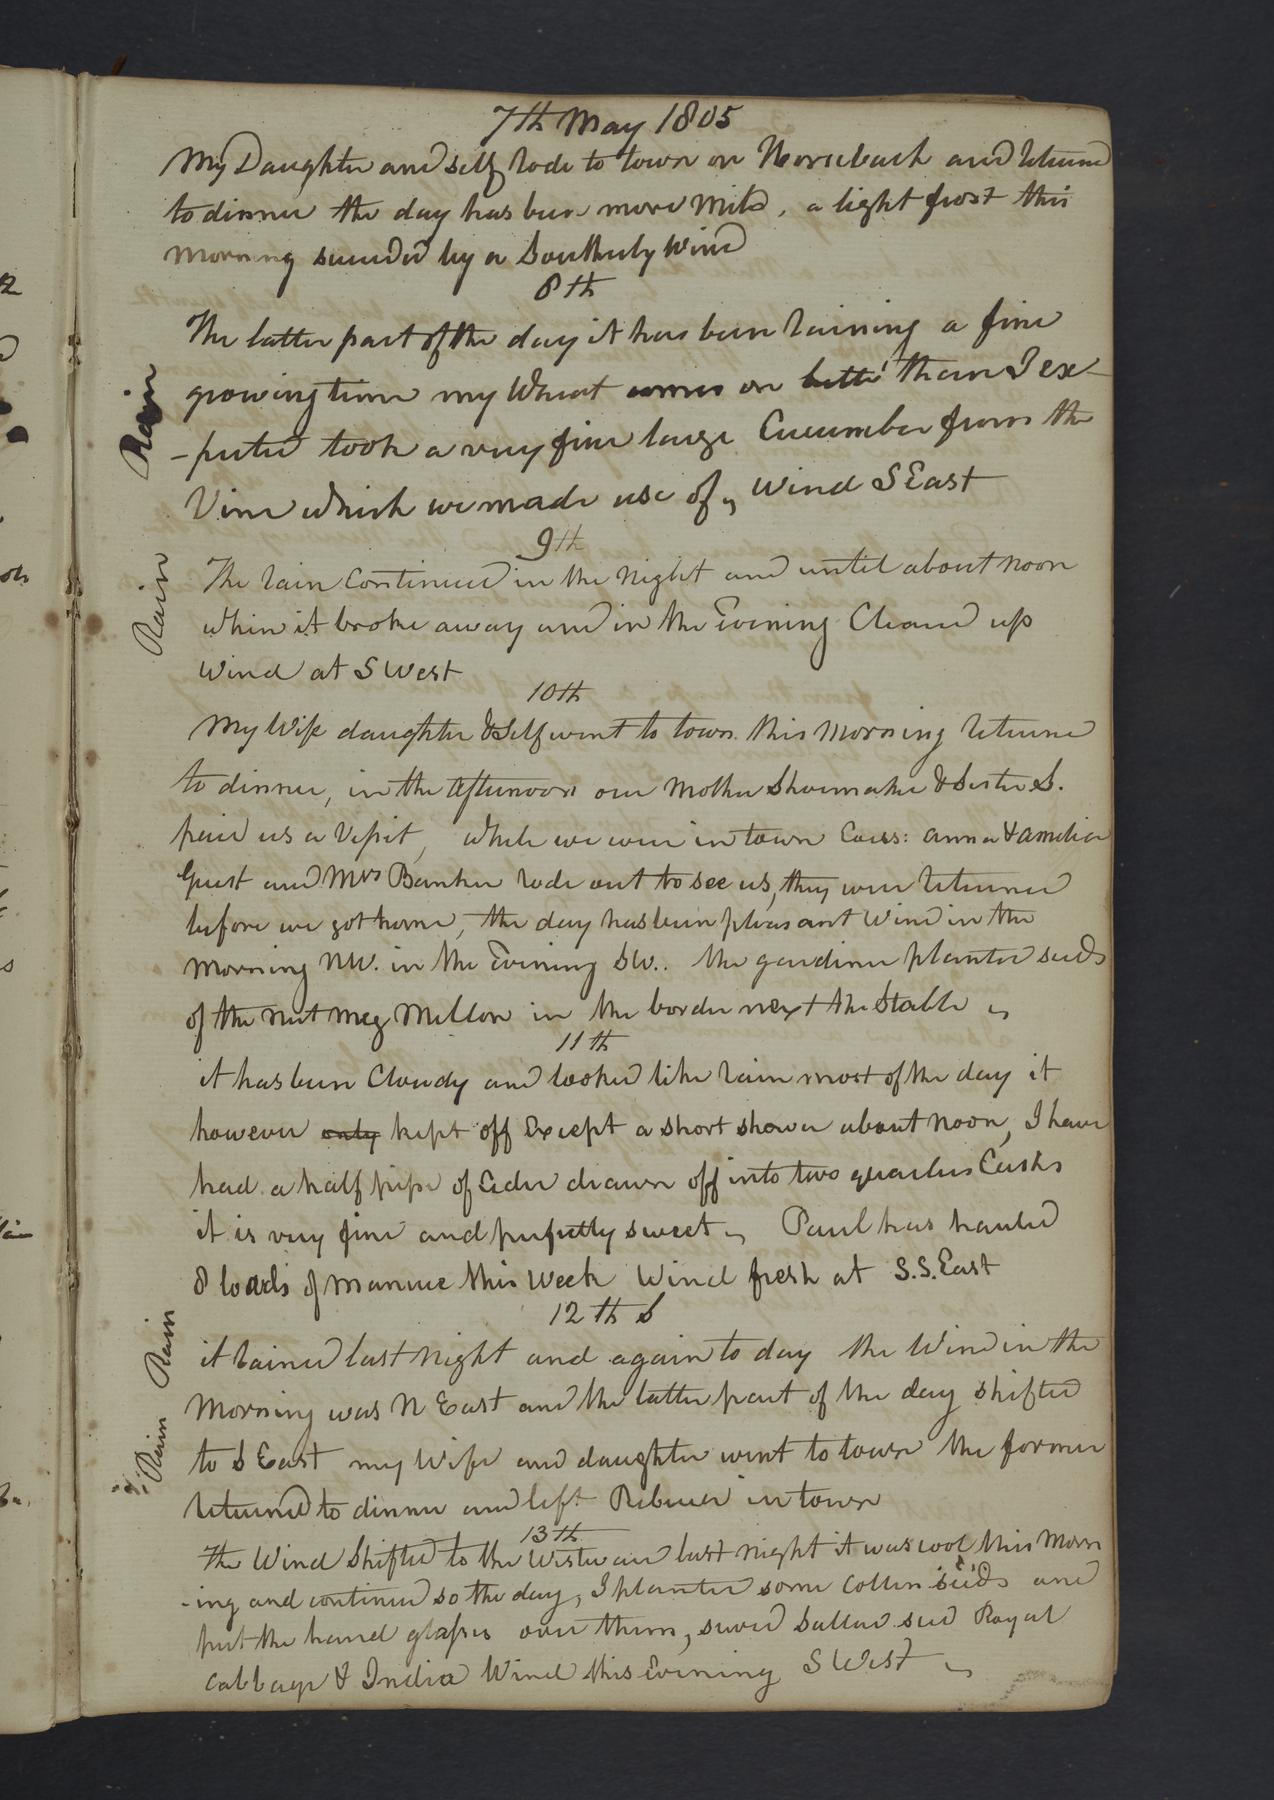 7th May 1805
My Daughter and self rode to town on Horseback and returned
to dinner the day has been more mild, a light frost this
morning succeeded by a Southerly Wind
8th
Rain
The latter part of the day it has been raining a fine
growing time my Wheat comes on better than I ex-
-pected took a very fine large Cucumber from the
Vine which we made use of, Wind S East
9th
Rain
The rain Continued in the Night and until about noon
when it broke away and in the Evening Cleared up
Wind at S West
10th
My Wife daughter & Self went to town this Morning returned
to dinner, in the Afternoon our Mother Shoemaker & Sister S.
paid us a Visit, while we were in town Cous: Anna & Amelia
Guest and Mrs Bankn rode out to see us, they were returned
before we got home, the day has been pleasant Wind in the
Morning NW. in the Evening SW.. the gardiner planted seeds
of the nut meg Mellon in the border next the Stable
11th
it has been Cloudy and looked like rain most of the day it
however only kept off Except a short shower about noon, I have
had a half pipe of Cider drawn off into two quarter Casks
it is very fine and perfectly sweet, Paul has hauled
8 loads of manure this Week Wind fresh at S.S. East
12th S
Rain
it rained last night and again to day the Wind in the
Morning was N East and the latter part of the day shifted
Rain
to S East my Wife and daughter went to town the former
returned to dinner and left Rebecca in town
13th
The Wind Shifted to the Westward last night it was cool this Morn
-ing and continued so the day, I planted some Cotten seeds and
put the hand glasses over them, sowed Sallad seed Royal
Cabbage & India Wind this Evening S West